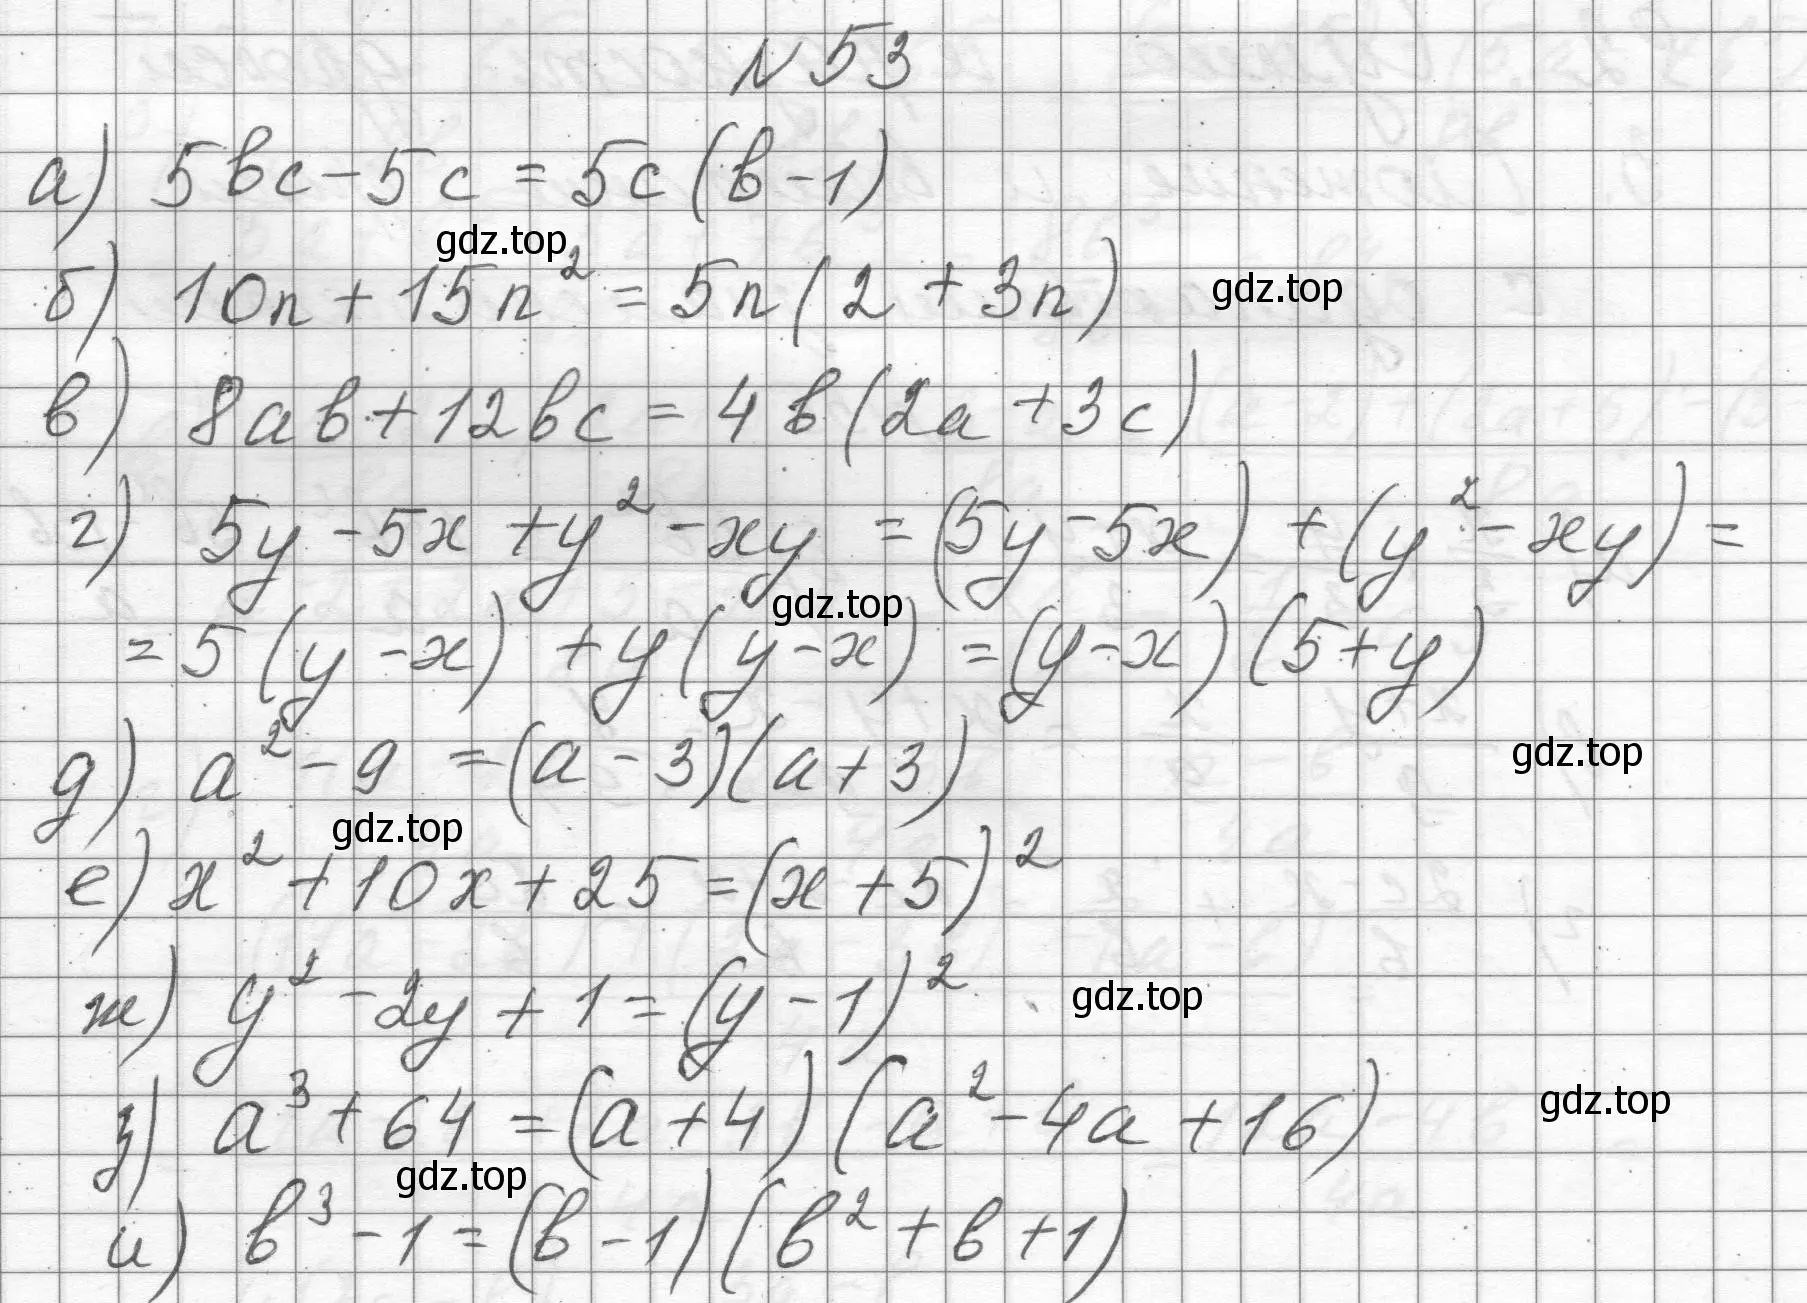 N 53
а) 5bc - 5c = 5c (b - 1)
gdz.top
б) 10n + 15n² = 5n (2 + 3n)
gdz.top
в) 8ab + 12bc = 4b (2a + 3c)
г) 5y - 5x + y² - xy = (5y - 5x) + (y² - xy) =
gdz.top
= 5 (y - x) + y (y - x) = (y - x) (5 + y)
д) a² - 9 = (a - 3)(a + 3)
gdz.top
gdz.top
е) x² + 10x + 25 = (x + 5)²
ж) y² - 2y + 1 = (y - 1)²
gdz.top
з) a³ + 64 = (a + 4) (a² - 4a + 16)
gdz.top
gdz.top
и) b³ - 1 = (b - 1) (b² + b + 1)